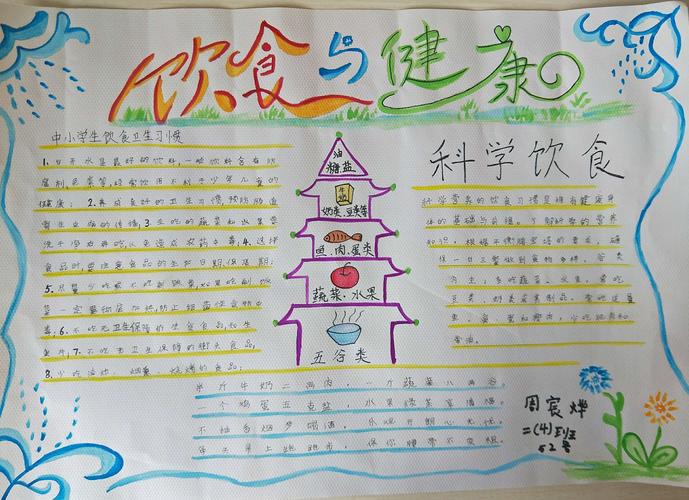 饮食与健康
中小学生饮食卫生习惯
1.白开水是最好的饮料,一些饮料含有防
腐剂,色素等,经常饮用不利于少年儿童的
健康。2.养成良好的卫生习惯,预防肠道
寄生虫病的传播;3.生吃的蔬菜和水果要
洗干净后再吃,以免造成农药中毒;4.选择
食品时,要注意食品的生产日期、保质期;
5.尽量少吃或不吃剩饭菜,如果吃剩饭
菜一定要彻底加热,防止细菌性食物中
毒;6.不吃无卫生保障的生食食品,如生
鱼片;7.不吃无卫生保障的街头食品;
8.少吃油炸、烟熏、烧烤的食品;
油
糖盐
牛奶
奶类、豆类等
鱼、肉、蛋类
蔬菜、水果
五谷类
科学饮食
科学营养的饮食习惯是拥有健康身
体的基础与前提。了解科学的营养
知识,根据平衡膳宝塔的要求,确
保一日三餐做到食物多样、谷类
为主;多吃蔬菜、水果,常吃
豆类、奶类或其制品,常吃适量
鱼、禽、蛋和瘦肉,少吃肥肉和
荤油。
半斤牛奶二两肉,一斤蔬菜八两谷
一个鸡蛋五克盐,水果绿茶常相
不抽香烟少喝酒,乐观开朗心无忧
每天早上跑跑步,保你健康不发
周宸烨
二(4)班
52号